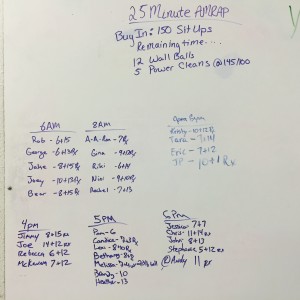 25 Minute AMRAP
Buy In: 150 Sit Ups
Remaining time....
12 Wall Balls
5 Power Cleans @145/100
6AM
Rob - 6+15
George - 6+13Rx
Jake - 8+15Rx
Joey - 10+12Rx
Bear - 8+15Rx
8AM
A-A-Ron - 7Rx
Gina -
Riki - 6+14
Nici -
Rachel - 7+13
Open Gym
Tara -
Eric - 7+12
JP - 10+1 Rx
4pm
Jimmy 8+15Rx
Joe 14+12Rx
Rebecca 6+12
McKenna 7+12
5PM
Pam-6
Candice-
Lexi-
Bethany-8
Melissa-
Brandy-10
Heather-13
6pm
Jessica 7+7
Chris 11+14Rx
John 8+13
Stephanie 5+12Rx
@Andy 11 Rx